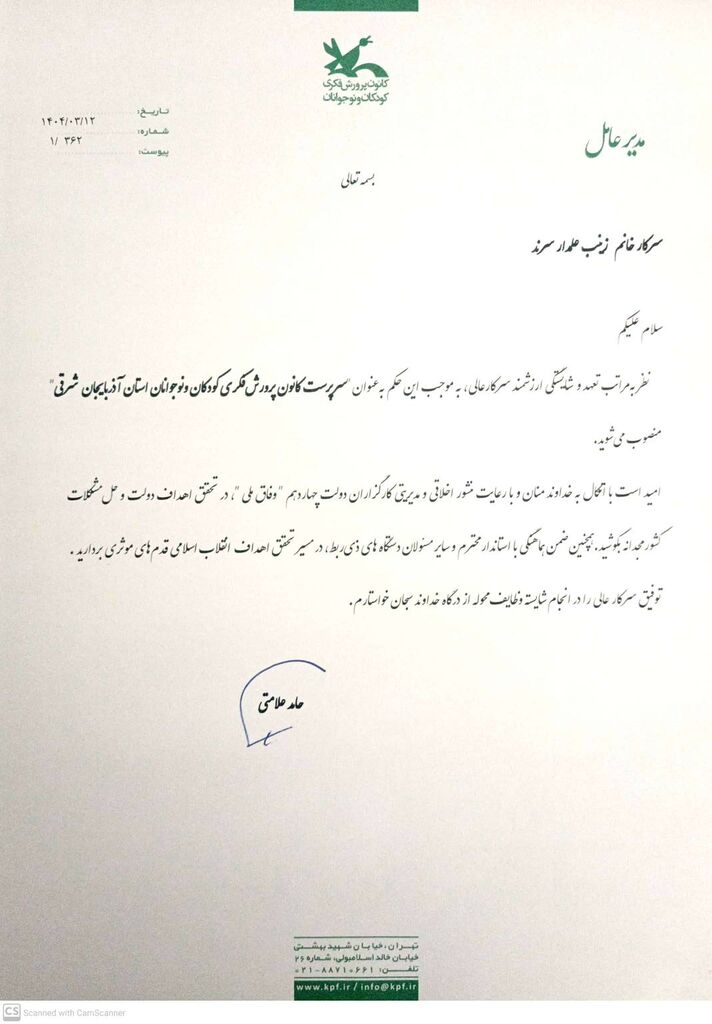 کانون پرورش فکری
کودکان و نوجوانان
تاریخ: ۱۴۰۴/۰۳/۱۲
شماره: ۱/ ۳۶۲
پیوست:
مدیر عامل
بسمه تعالی
سرکار خانم زینب علمدار سرند
سلام علیکم
نظر به مراتب تعهد و شایستگی ارزشمند سرکارعالی، به موجب این حکم به عنوان "سرپرست کانون پرورش فکری کودکان و نوجوانان استان آذربایجان شرقی"
منصوب می‌شوید.
امید است با اتکال به خداوند منان و با رعایت منشور اخلاقی و مدیریتی کارگزاران دولت چهاردهم "وفاق ملی"، در تحقق اهداف دولت و حل مشکلات
کشور مجدانه بکوشید. همچنین ضمن هماهنگی با استاندار محترم و سایر مسئولان دستگاه های ذی‌ربط، در مسیر تحقق اهداف انقلاب اسلامی قدم های موثری بردارید .
توفیق سرکار عالی را در انجام شایسته وظایف محوله از درگاه خداوند سبحان خواستارم.
حامد علامتی
تهران، خیابان شهید بهشتی
خیابان خالد اسلامبولی، شماره ۲۶
تلفن: ۰۲۱-۸۸۷۱۰۶۶۱
www.kpf.ir / info@kpf.ir
CS Scanned with CamScanner